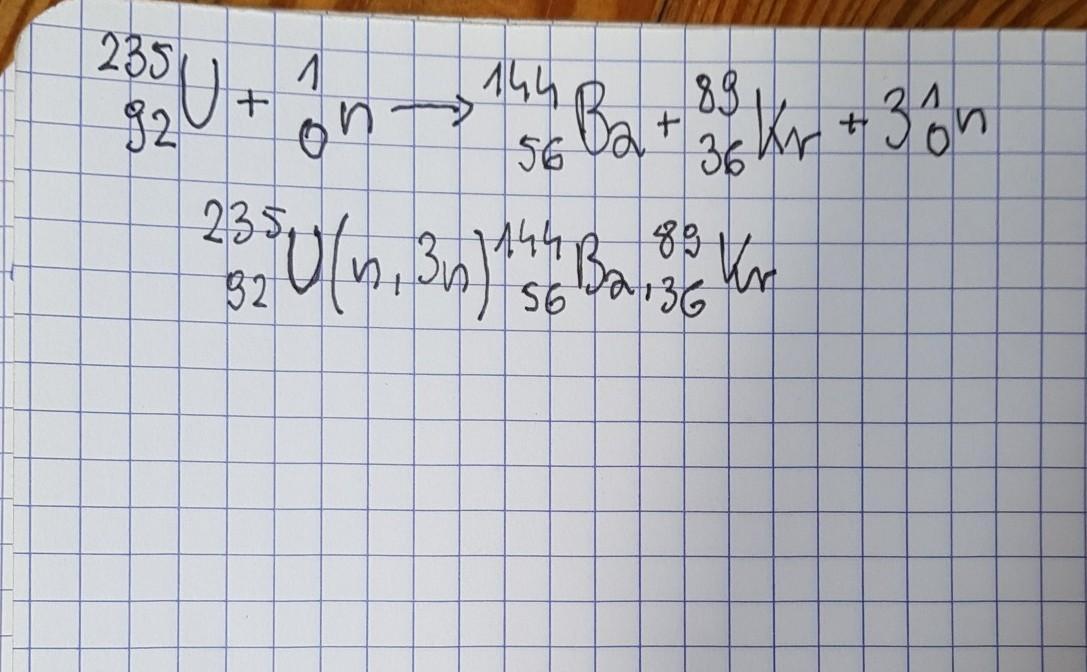 ²³⁵₉₂U + ¹₀n → ¹⁴⁴₅₆Ba + ⁸⁹₃₆Kr + 3¹₀n
²³⁵₉₂U(n, 3n)¹⁴⁴₅₆Ba, ⁸⁹₃₆Kr